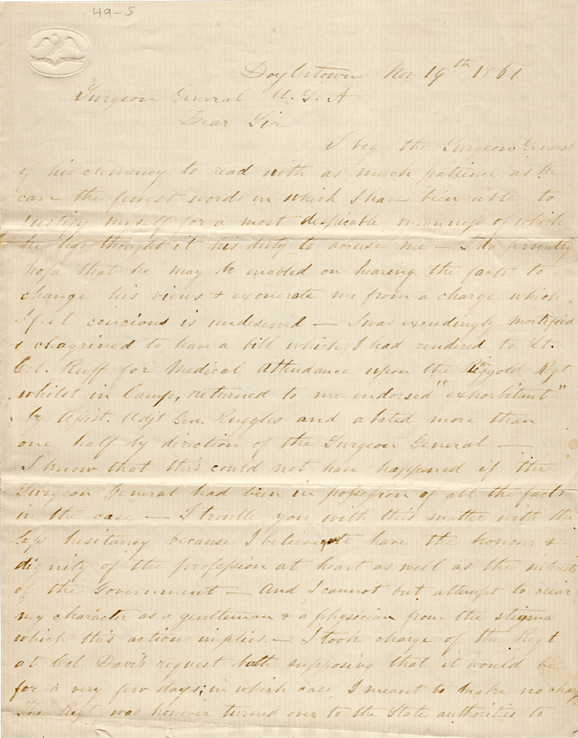 49-5
Doylestown Nov 19th 1861
Surgeon General U.S.A
Dear Sir
I beg the Surgeon General
of his clemency to read with as much patience as he
can the fewest words in which I have been able to
justify myself for a most despicable meanness of which
he has thought it his duty to accuse me — I do fervently
hope that he may be enabled on hearing the facts to
change his views & exonerate me from a charge which
I feel concious is undeserved — I was exceedingly mortified
& chagrined to have a bill which I had rendered to Lt.
Col. Ruff for Medical Attendance upon the Ringgold Regt
whilst in Camp, returned to me endorsed "exhorbitant"
by Assist. Adjt Gen. Ruggles and abated more than
one half by direction of the Surgeon General —
I know that this could not have happened if the
Surgeon General had been in possession of all the facts
in the case — I trouble you with this matter with the
less hesitancy because I believe you to have the honour &
dignity of the profession at heart as well as the interests
of the Government — And I cannot but attempt to clear
my character as a gentleman & a physician from the stigma
which this action implies. — I took charge of the Regt
at Col Davis's request supposing that it would be
for a very few days; in which case I meant to make no charge
The Regt was however turned over to the State authorities to